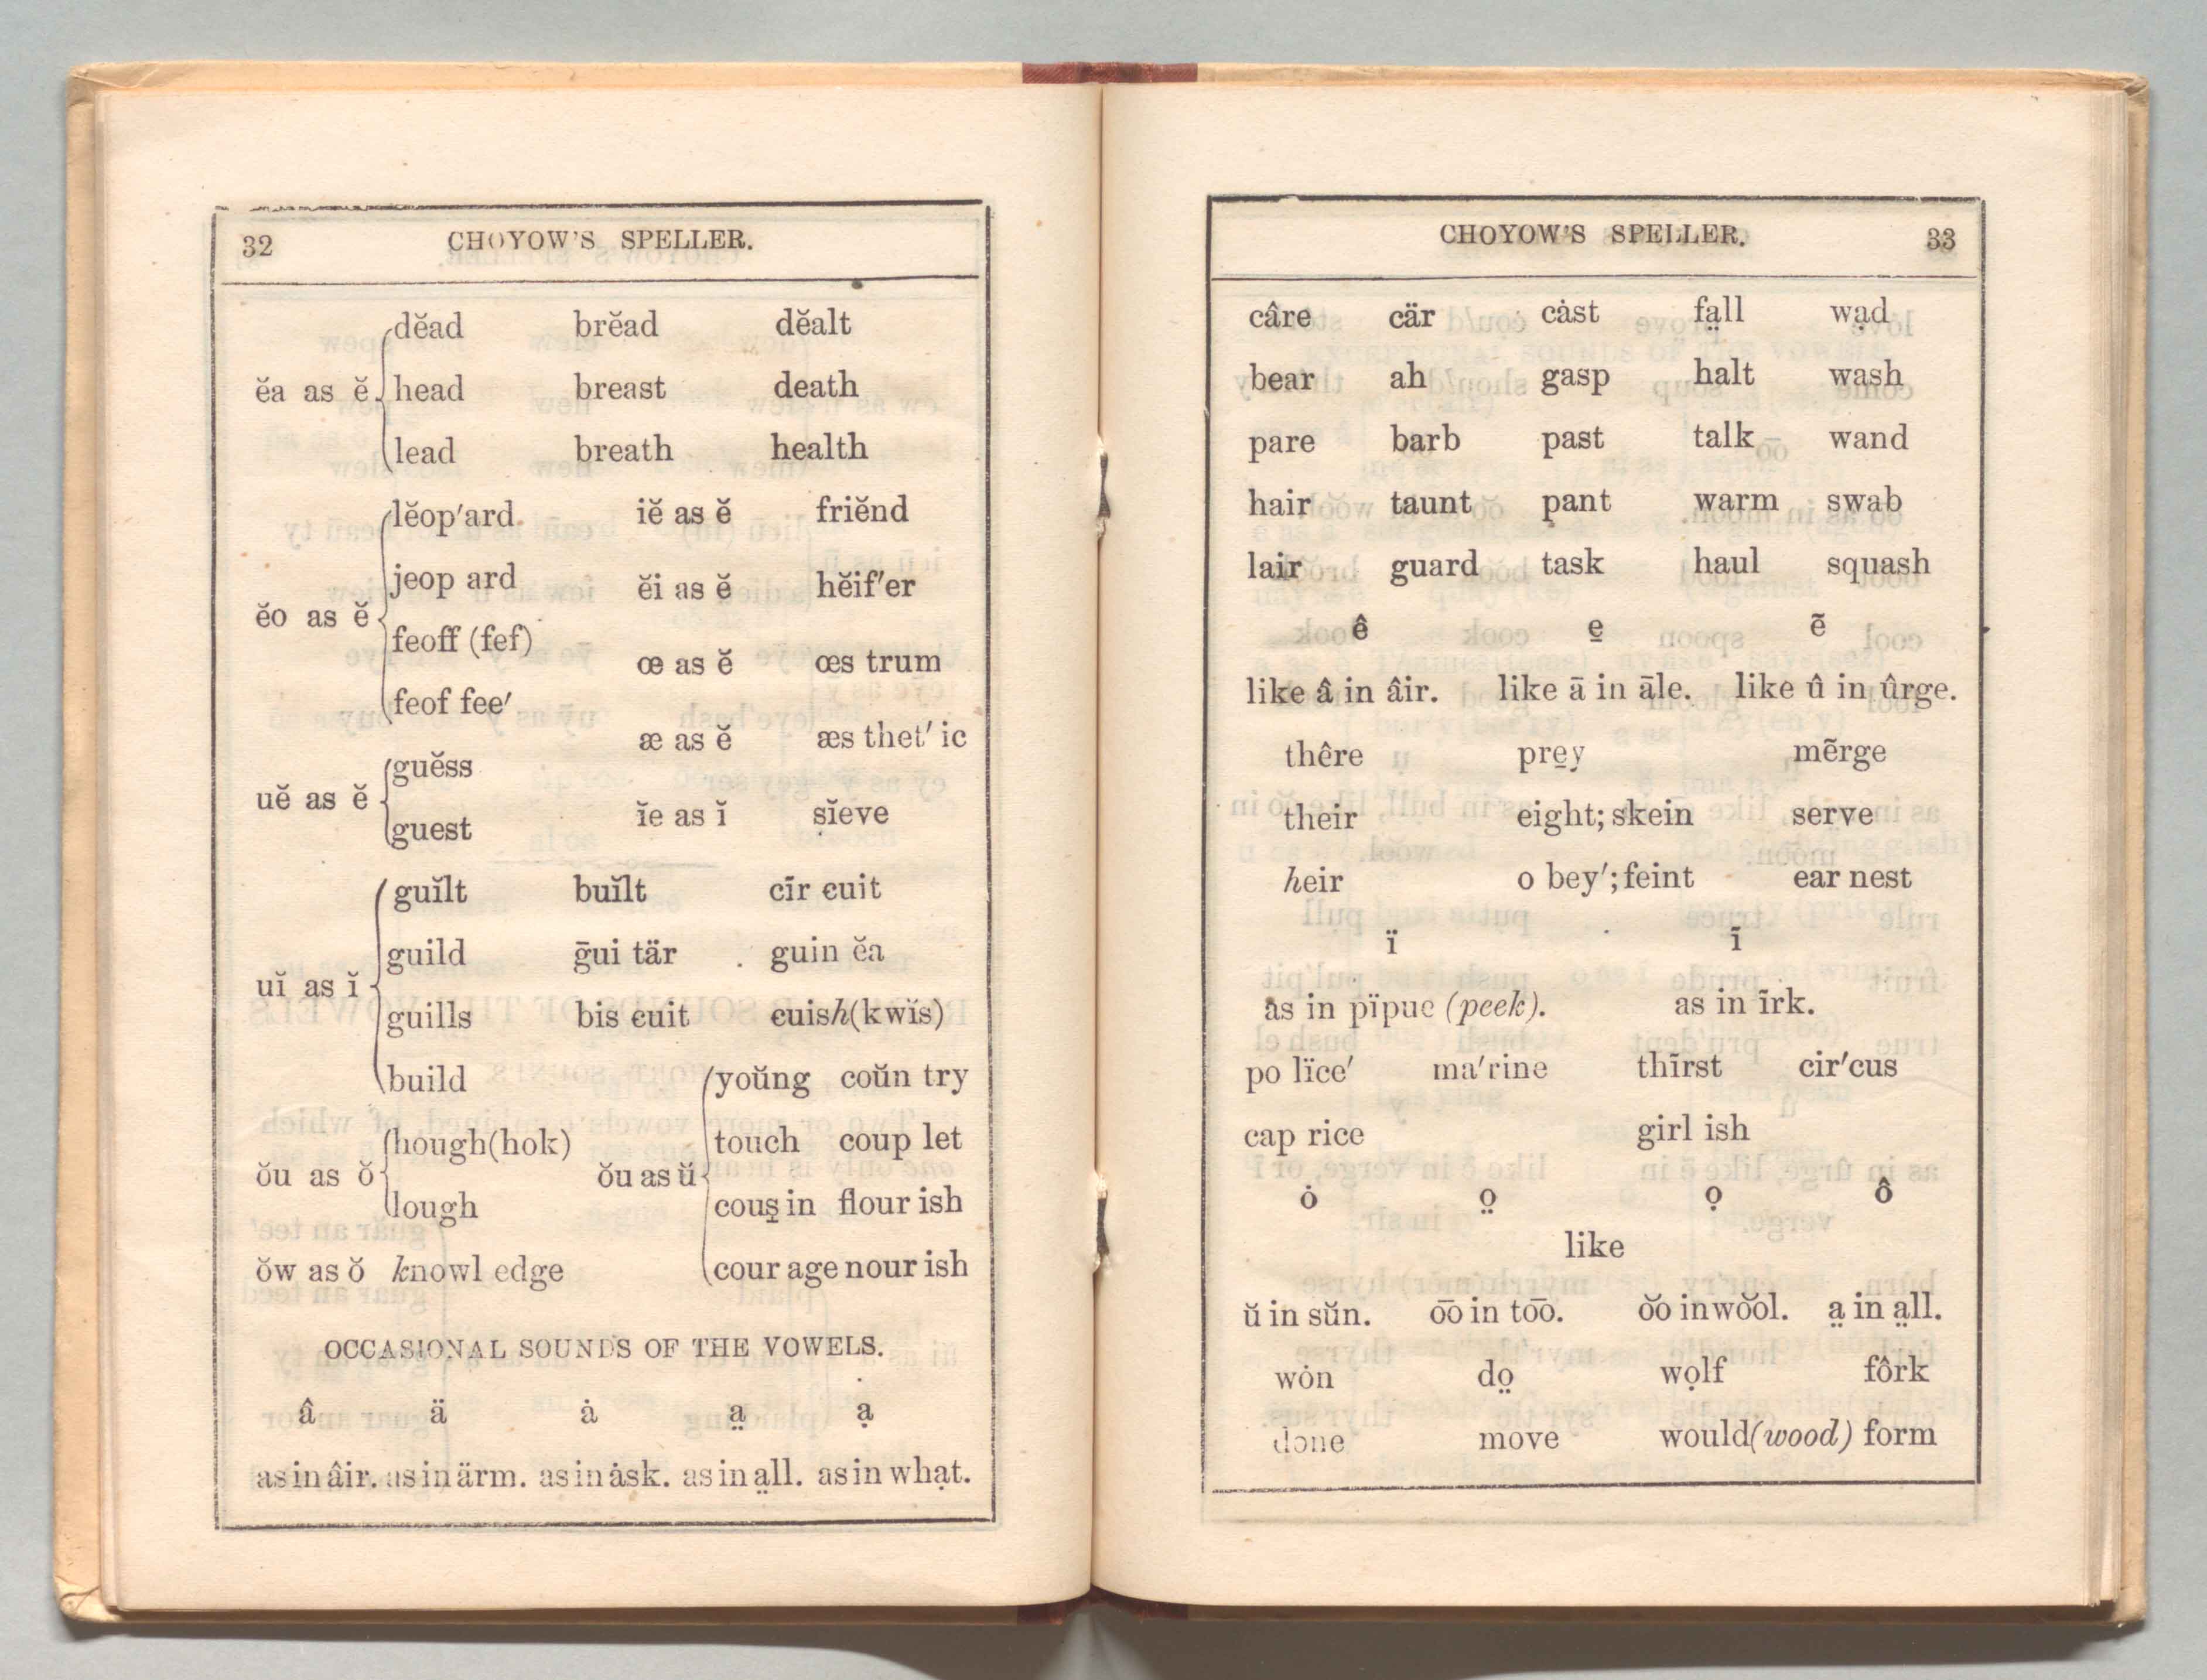 32 CHOYOW'S SPELLER.
dĕad brĕad dĕalt
ĕa as ĕ head breast death
lead breath health
lĕop'ard iĕ as ĕ friĕnd
jeop ard ĕi as ĕ hĕif'er
ĕo as ĕ feoff (fef) œ as ĕ œs trum
feof fee' æ as ĕ æs thet' ic
guĕss
uĕ as ĕ ĭe as ĭ sĭeve
guest
guĭlt buĭlt cīr cuit
guild ḡui tär guin ĕa
uĭ as ĭ
guills bis cuit cuish(kwĭs)
build yoŭng coŭn try
hough(hok) touch coup let
ŏu as ŏ ŏu as ŭ
lough cous̱ in flour ish
ŏw as ŏ knowl edge cour age nour ish
OCCASIONAL SOUNDS OF THE VOWELS.
â ä ȧ a̤ ạ
as in âir. as in ärm. as in ȧsk. as in a̤ll. as in whạt.
CHOYOW'S SPELLER. 33
câre cär cȧst fa̤ll wạd
bear ah gasp halt wash
pare barb past talk wand
hair taunt pant warm swab
lair guard task haul squash
ê e̱ ẽ
like â in âir. like ā in āle. like û in ûrge.
thêre pre̱y mẽrge
their eight; skein serve
heir o bey'; feint ear nest
ï ī
as in pïque (peek). as in īrk.
po lïce' ma'rine thīrst cir'cus
cap rice girl ish
ȯ o̤ ọ ô
like
ŭ in sŭn. o͞o in to͞o. o͝o in wo͝ol. a̤ in a̤ll.
wȯn do̤ wọlf fôrk
done move would(wood) form